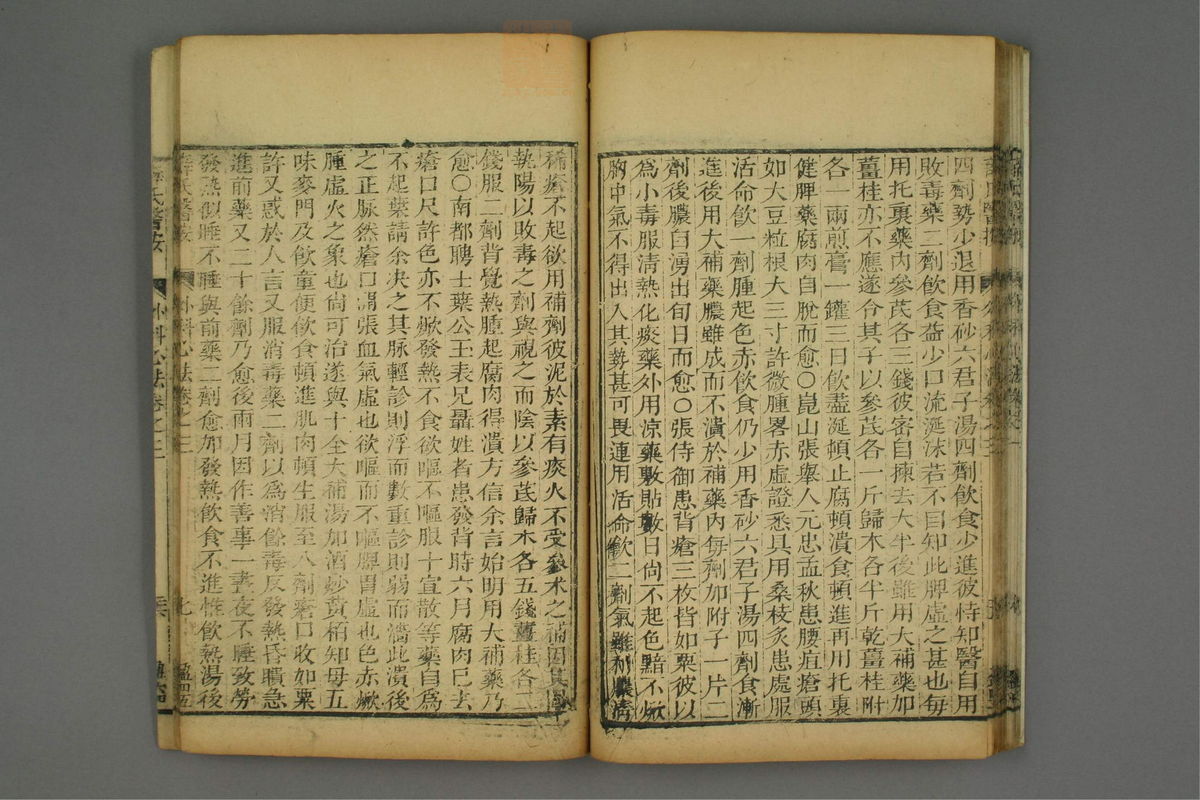 四劑勢少退用香砂六君子湯四劑飲食少進彼恃知醫自用
敗毒藥二劑飲食益少口流涎沫若不自知此脾虛之甚也每
用托裏藥內參芪各三錢彼密自揀去大半後雖用大補藥加
薑桂亦不應遂令其子以參芪各一斤歸木各半斤乾薑桂附
各一兩煎膏一罐三日飲盡涎頓止腐頓潰食頓進再用托裏
健脾藥腐肉自脫而愈〇崑山張舉人元忠孟秋患腰疽瘡頭
如大豆粒根大三寸許微腫畧赤虛證悉具用桑枝灸患處服
活命飲一劑腫起色赤飲食仍少用香砂六君子湯四劑食漸
進後用大補藥膿雖成而不潰於補藥內每劑加附子一片二
劑後膿自湧出旬日而愈〇張侍御患背瘡三枚皆如粟彼以
爲小毒服清熱化痰藥外用凉藥敷貼數日尙不起色黯不焮
胸中氣不得出入其勢甚可畏連用活命飲二劑氣雖利膿清
稀瘡不起欲用補劑彼泥於素有痰火不受參术之補因其
熱陽以敗毒之劑與視之而陰以參芪歸木各五錢薑桂各二
錢服二劑背覺熱腫起腐肉得潰方信余言始明用大補藥乃
愈〇南都聘士葉公玉表兄聶姓者患發背時六月腐肉已去
瘡口尺許色亦不焮發熱不食欲嘔不嘔服十宣散等藥自爲
不起葉請余决之其脉輕診則浮而數重診則弱而濇此潰後
之正脉然瘡口開張血氣虛也欲嘔而不嘔脾胃虛也色赤焮
腫虛火之象也尙可治遂與十全大補湯加酒炒黃栢知母五
味麥門及飲童便飲食頓進肌肉頓生服至八劑瘡口收如粟
許又惑於人言又服消毒藥二劑以爲消餘毒反發熱昏聵急
進前藥又二十餘劑乃愈後兩月因作善事一晝夜不睡致勞
發熱似睡不睡與前藥二劑愈加發熱飲食不進惟飲熱湯後
薛氏醫按 外科心法卷之三 七